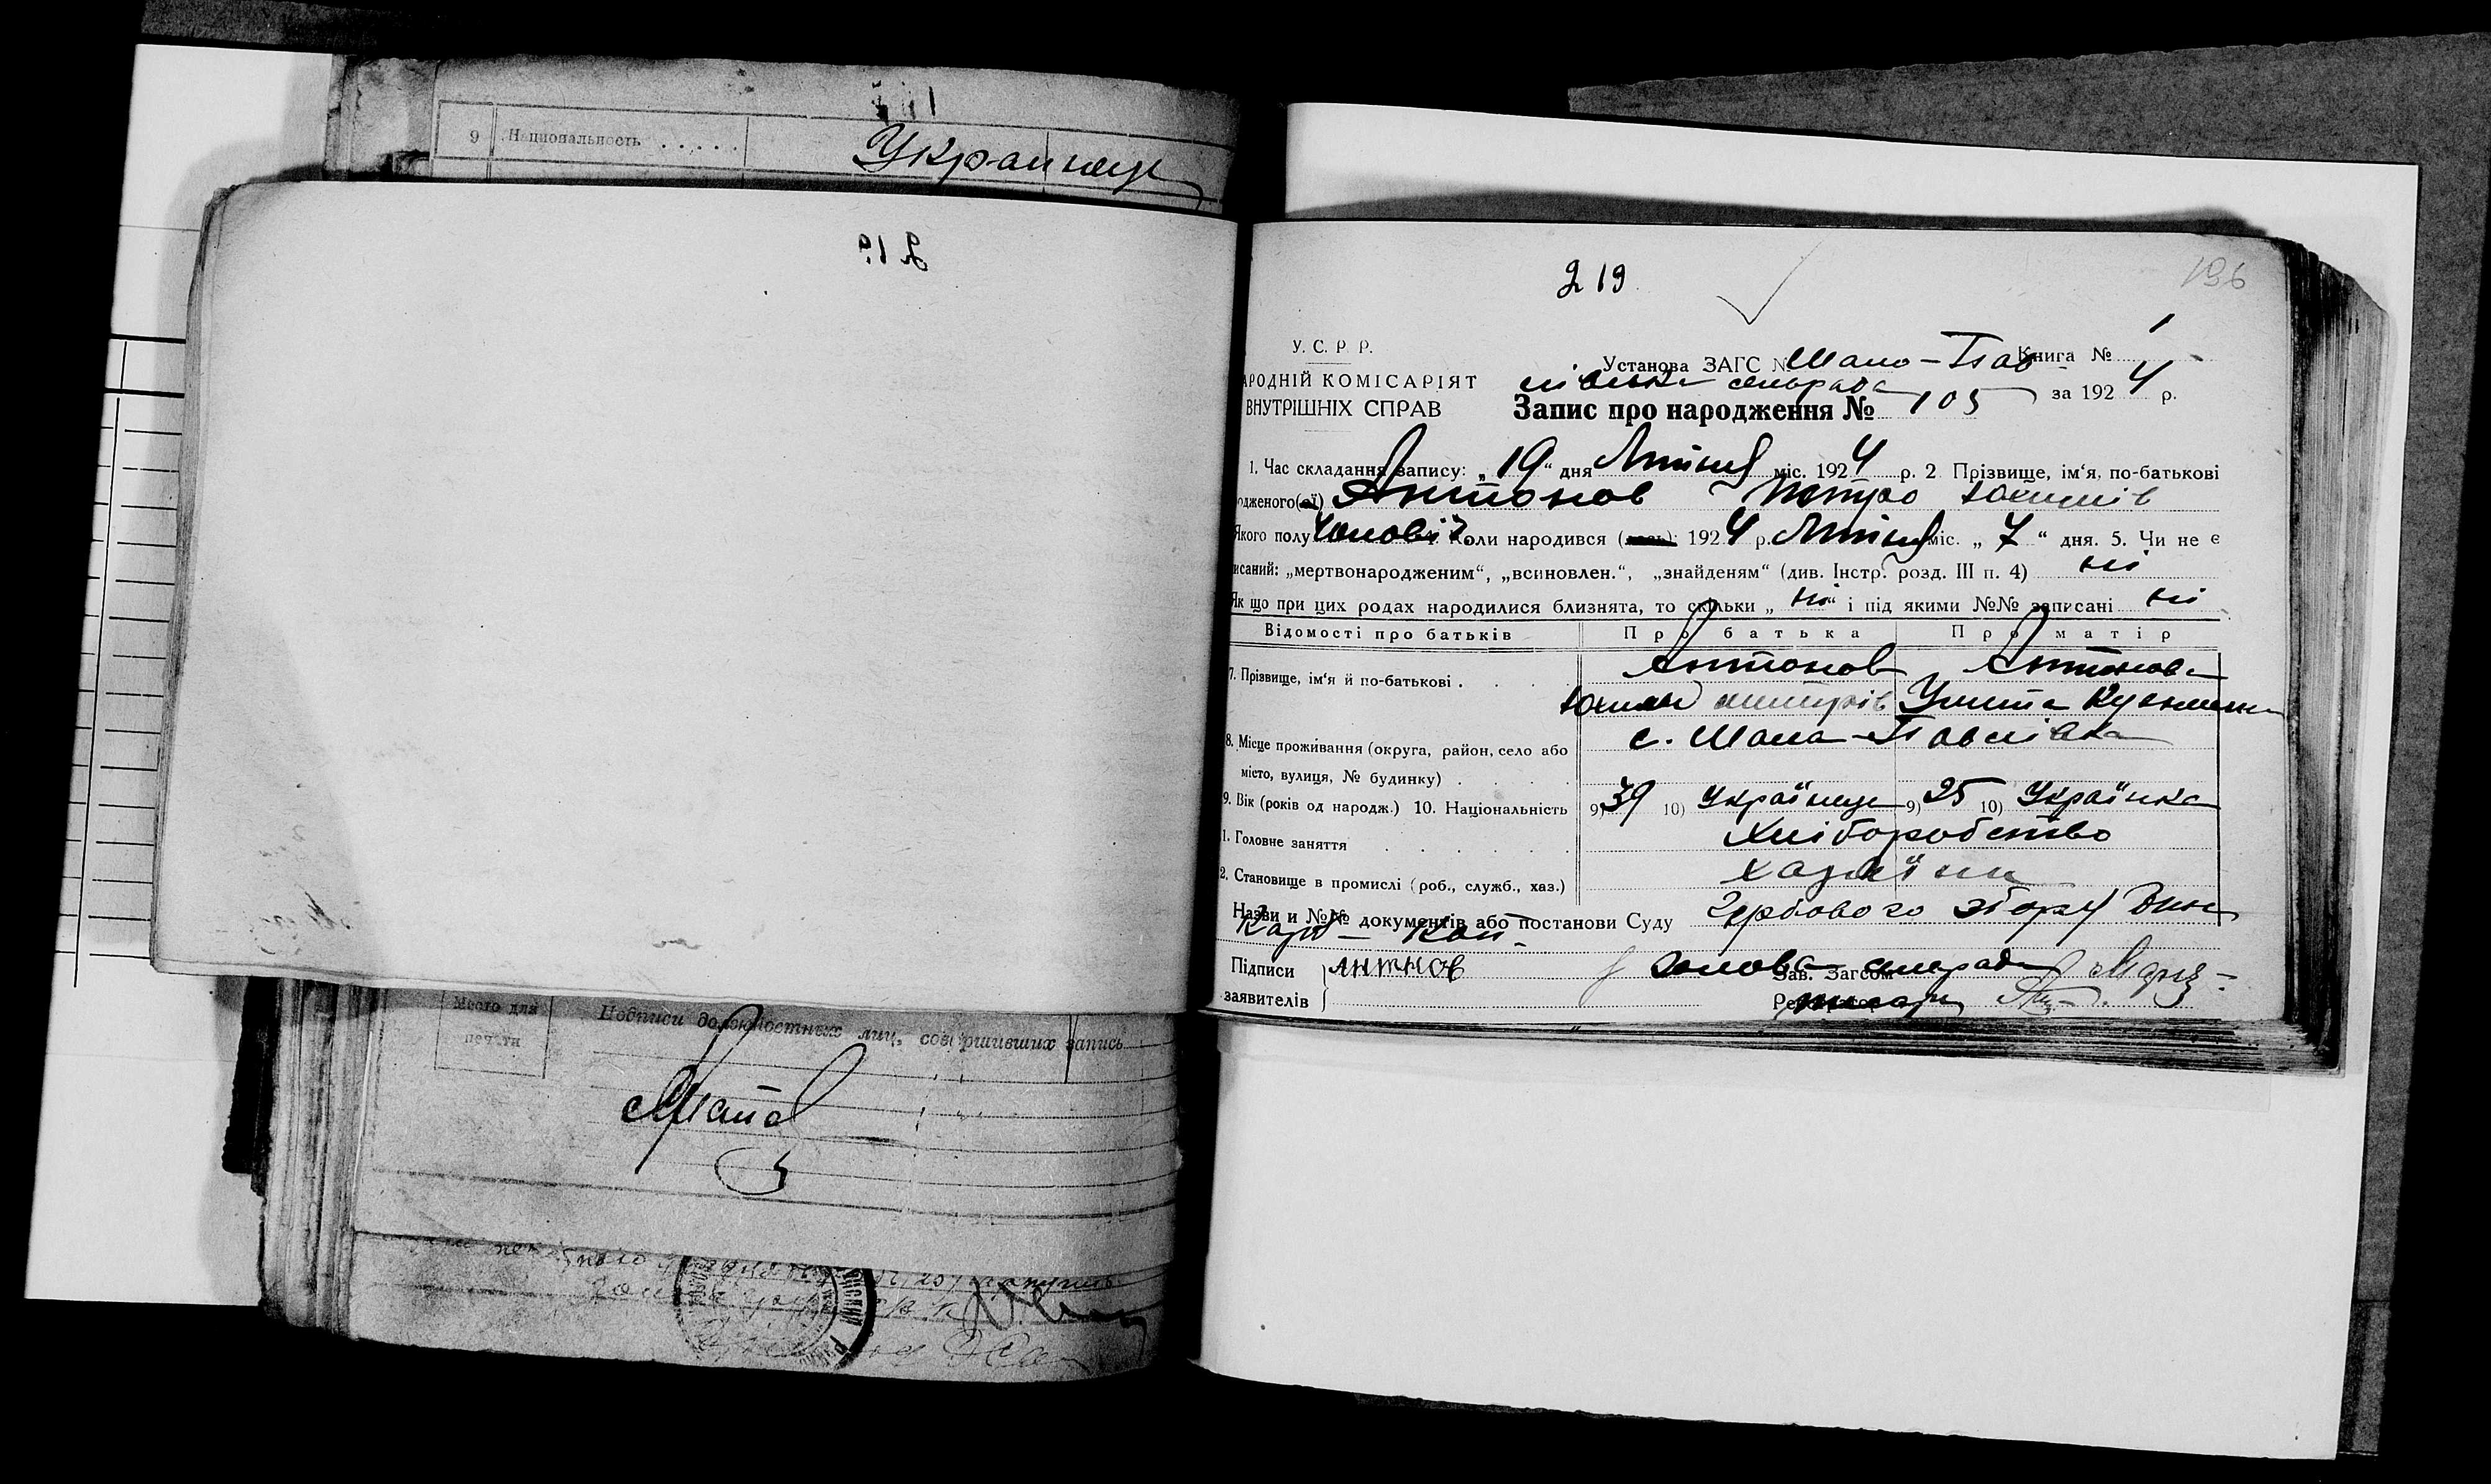 9 Национальность . . . . . Украинец
219
196
У. С. Р. Р.
АРОДНІЙ КОМІСАРІЯТ
ВНУТРІШНІХ СПРАВ
Установа ЗАГС № Мало-Пав Книга № 1
лівська сельрада за 1924 р.
Запис про народження № 105
1. Час складання запису: „19“ дня Лютня міс. 1924 р. 2 Прізвище, ім‘я, по-батькові
одженого(ої) Антонов Петро Юхимів
Якого полу Чоловіч. Коли народився 1924 р. Лютня міс. „7“ дня. 5. Чи не є
исаний: „мертвонародженим“, „всиновлен.“, „знайденям“ (див. Інстр. розд. III п. 4) ні
Як що при цих родах народилися близнята, то скільки „ні“ і під якими №№ записані ні
Відомості про батьків Про батька Про матір
7. Прізвище, ім‘я й по-батькові . Антонов Антонова
Юхим Улита
8. Місце проживання (округа, район, село або с. Мала-Павлівка
місто, вулиця, № будинку) .
9. Вік (років од народж.) 10. Національність 9) 39 10) Українець 9) 25 10) Українка
1. Головне заняття Хліборобство
2. Становище в промислі (роб., служб., хаз.) хазяїни
Назви и №№ документів або постанови Суду Гербового збору
Підписи АНТНОВ Голова сельради Зав. Загсом
заявителів писарь
Место для
печати
Подписи должностных лиц, совершивших запись